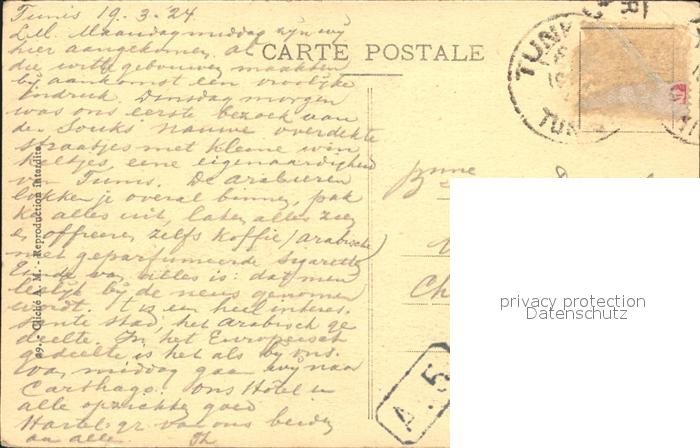 Tunis 19.3.'24
L.M. Maandagmiddag zijn wij
hier aangekomen. Al
CARTE POSTALE
die witte gebouwen maakten
bij aankomst een vroolijke
indruk. Dinsdag morgen
was ons eerste bezoek aan
de Souks: nauwe overdekte
straatjes met kleine win
keltjes, eene eigenaardigheid
van Tunis. De arabieren
lokken je overal binnen, pak
ke alles uit, laten alles zien
en offreeren zelfs koffie (arabische)
met geparfumeerde sigarette
Einde van alles is: dat men
lelijk bij de neus genomen
wordt. 't is een heel interes.
sante stad, het arabisch ge
deelte. In het Europeesch
gedeelte is het als bij ons.
Van middag gaan wij naar
Carthago. Ons Hotel in
alle opzichte goed
Hartel. gr. van ons beiden
aan alle. Th
29. - Cliché A. M. - Reproduction interdite
TUNIS
TUNIS
Ch
A.5
privacy protection
Datenschutz